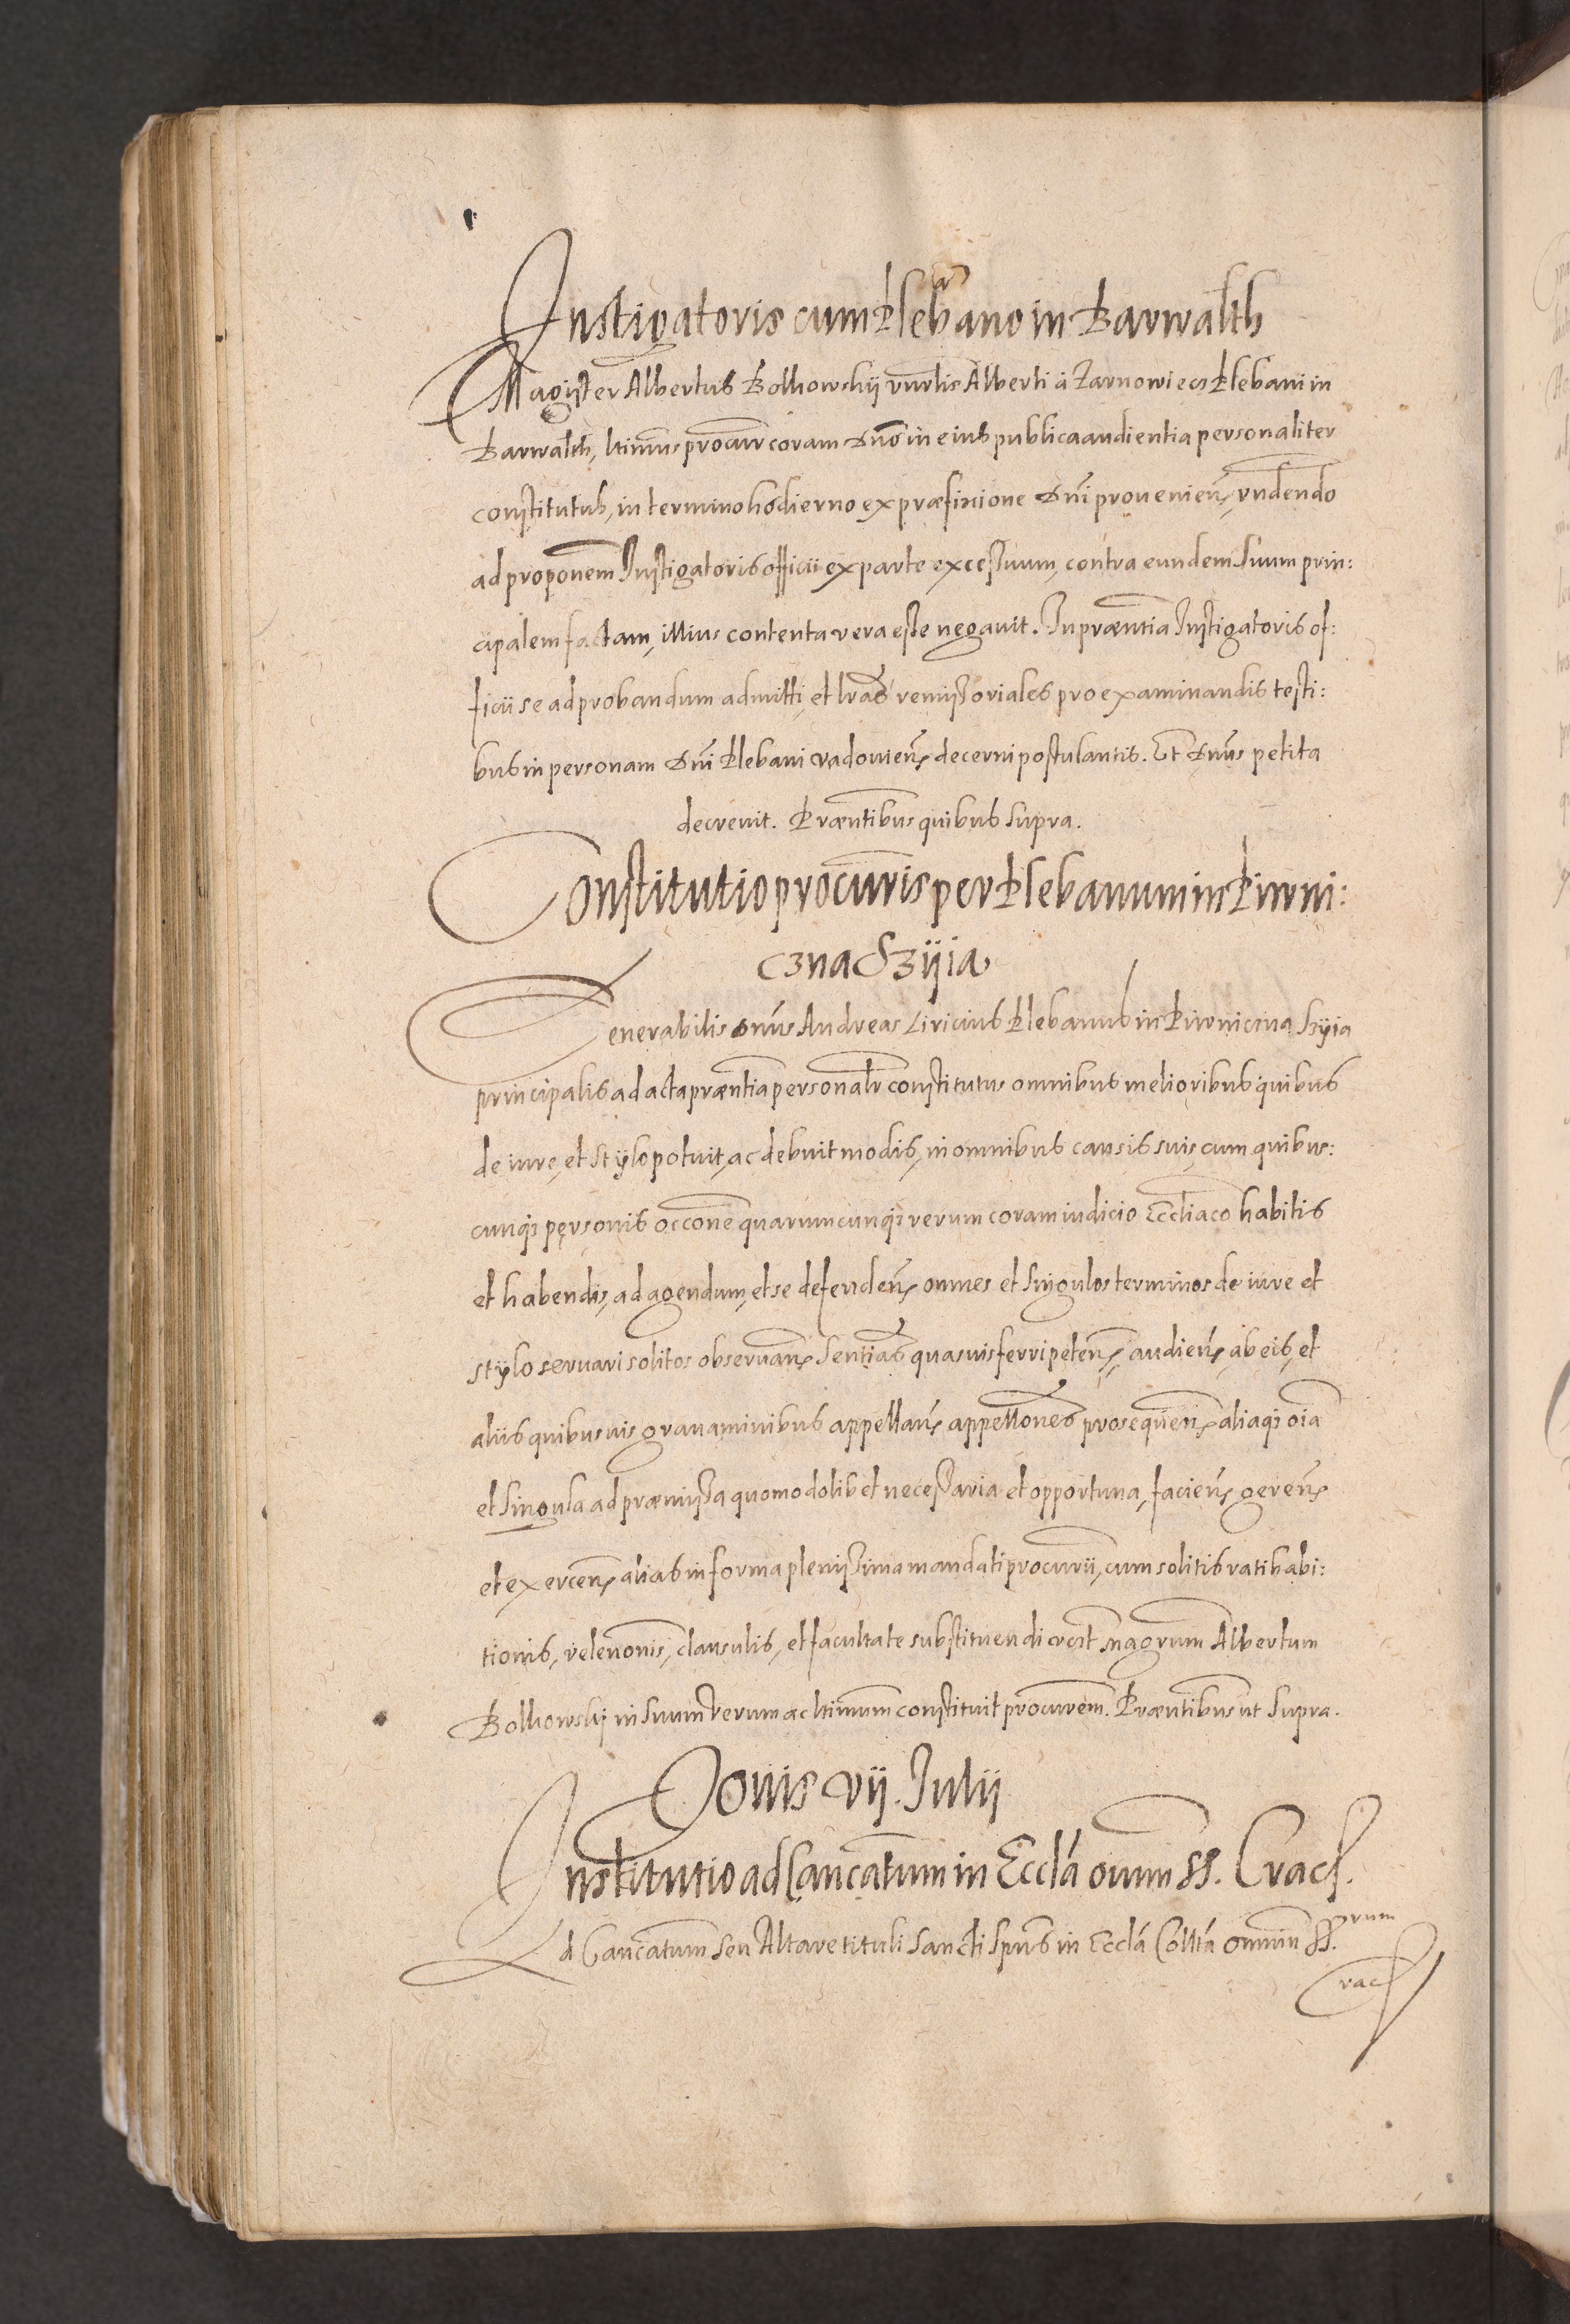 Instigatoris cum Plebano in Barwalth
Magister Albertus Bolhowskij vnrlis Alberti à Zarnowiecz Plebani in
Barwalth, ltimus procur coram Dno in eius publica audientia personaliter
constitutus, in termino hodierno ex præfixione Dni proueniens, rndendo
ad proponem Instigatoris officii ex parte excessuum, contra eundem suum prin:
cipalem factam, illius contenta vera esse negauit. In præntia Instigatoris of:
ficii se ad probandum admitti, et lras remissoriales pro examinandis testi:
bus in personam Dni Plebani vadouiens decerni postulantis. Et Dnus petita
decreuit. Præntibus quibus supra.
Constitutio procuris per Plebanum in Piwni:
czna Szÿia
Venerabilis Dnus Andreas Liricius Plebanus in Piwniczna Szÿia
principalis ad acta præntia personalr constitutus omnibus melioribus quibus
de iure, et stÿlo potuit, ac debuit modis, in omnibus causis suis, cum quibus:
cunq personis occone quarumcunq rerum coram iudicio Eccliaco habitis
et habendis, ad agendum, et se defendens omnes et singulos terminos de iure et
stÿlo seruari solitos obseruans sentias quasuis ferri petens, audiens, ab eis, et
aliis quibusuis grauaminibus appellans appellones prosequens aliaq oia
et singula ad præmissa quomodolibet necessaria et opportuna, faciens gerens
et exercens alias in forma plenissima mandati procurii, cum solitis ratihabi:
tionis, releuonis, clausulis, et facultate substituendi Magrum Albertum
Bolhowskij in suum verum ac ltimum constituit procurem. Præntibus ut supra.
Jouis vij. Julij
Institutio ad Cancatum in Eccla oium SS. Crac.
Ad Cancatum seu Altare tituli Sancti Spus in Eccla Collta omnium SS.orum
Crac